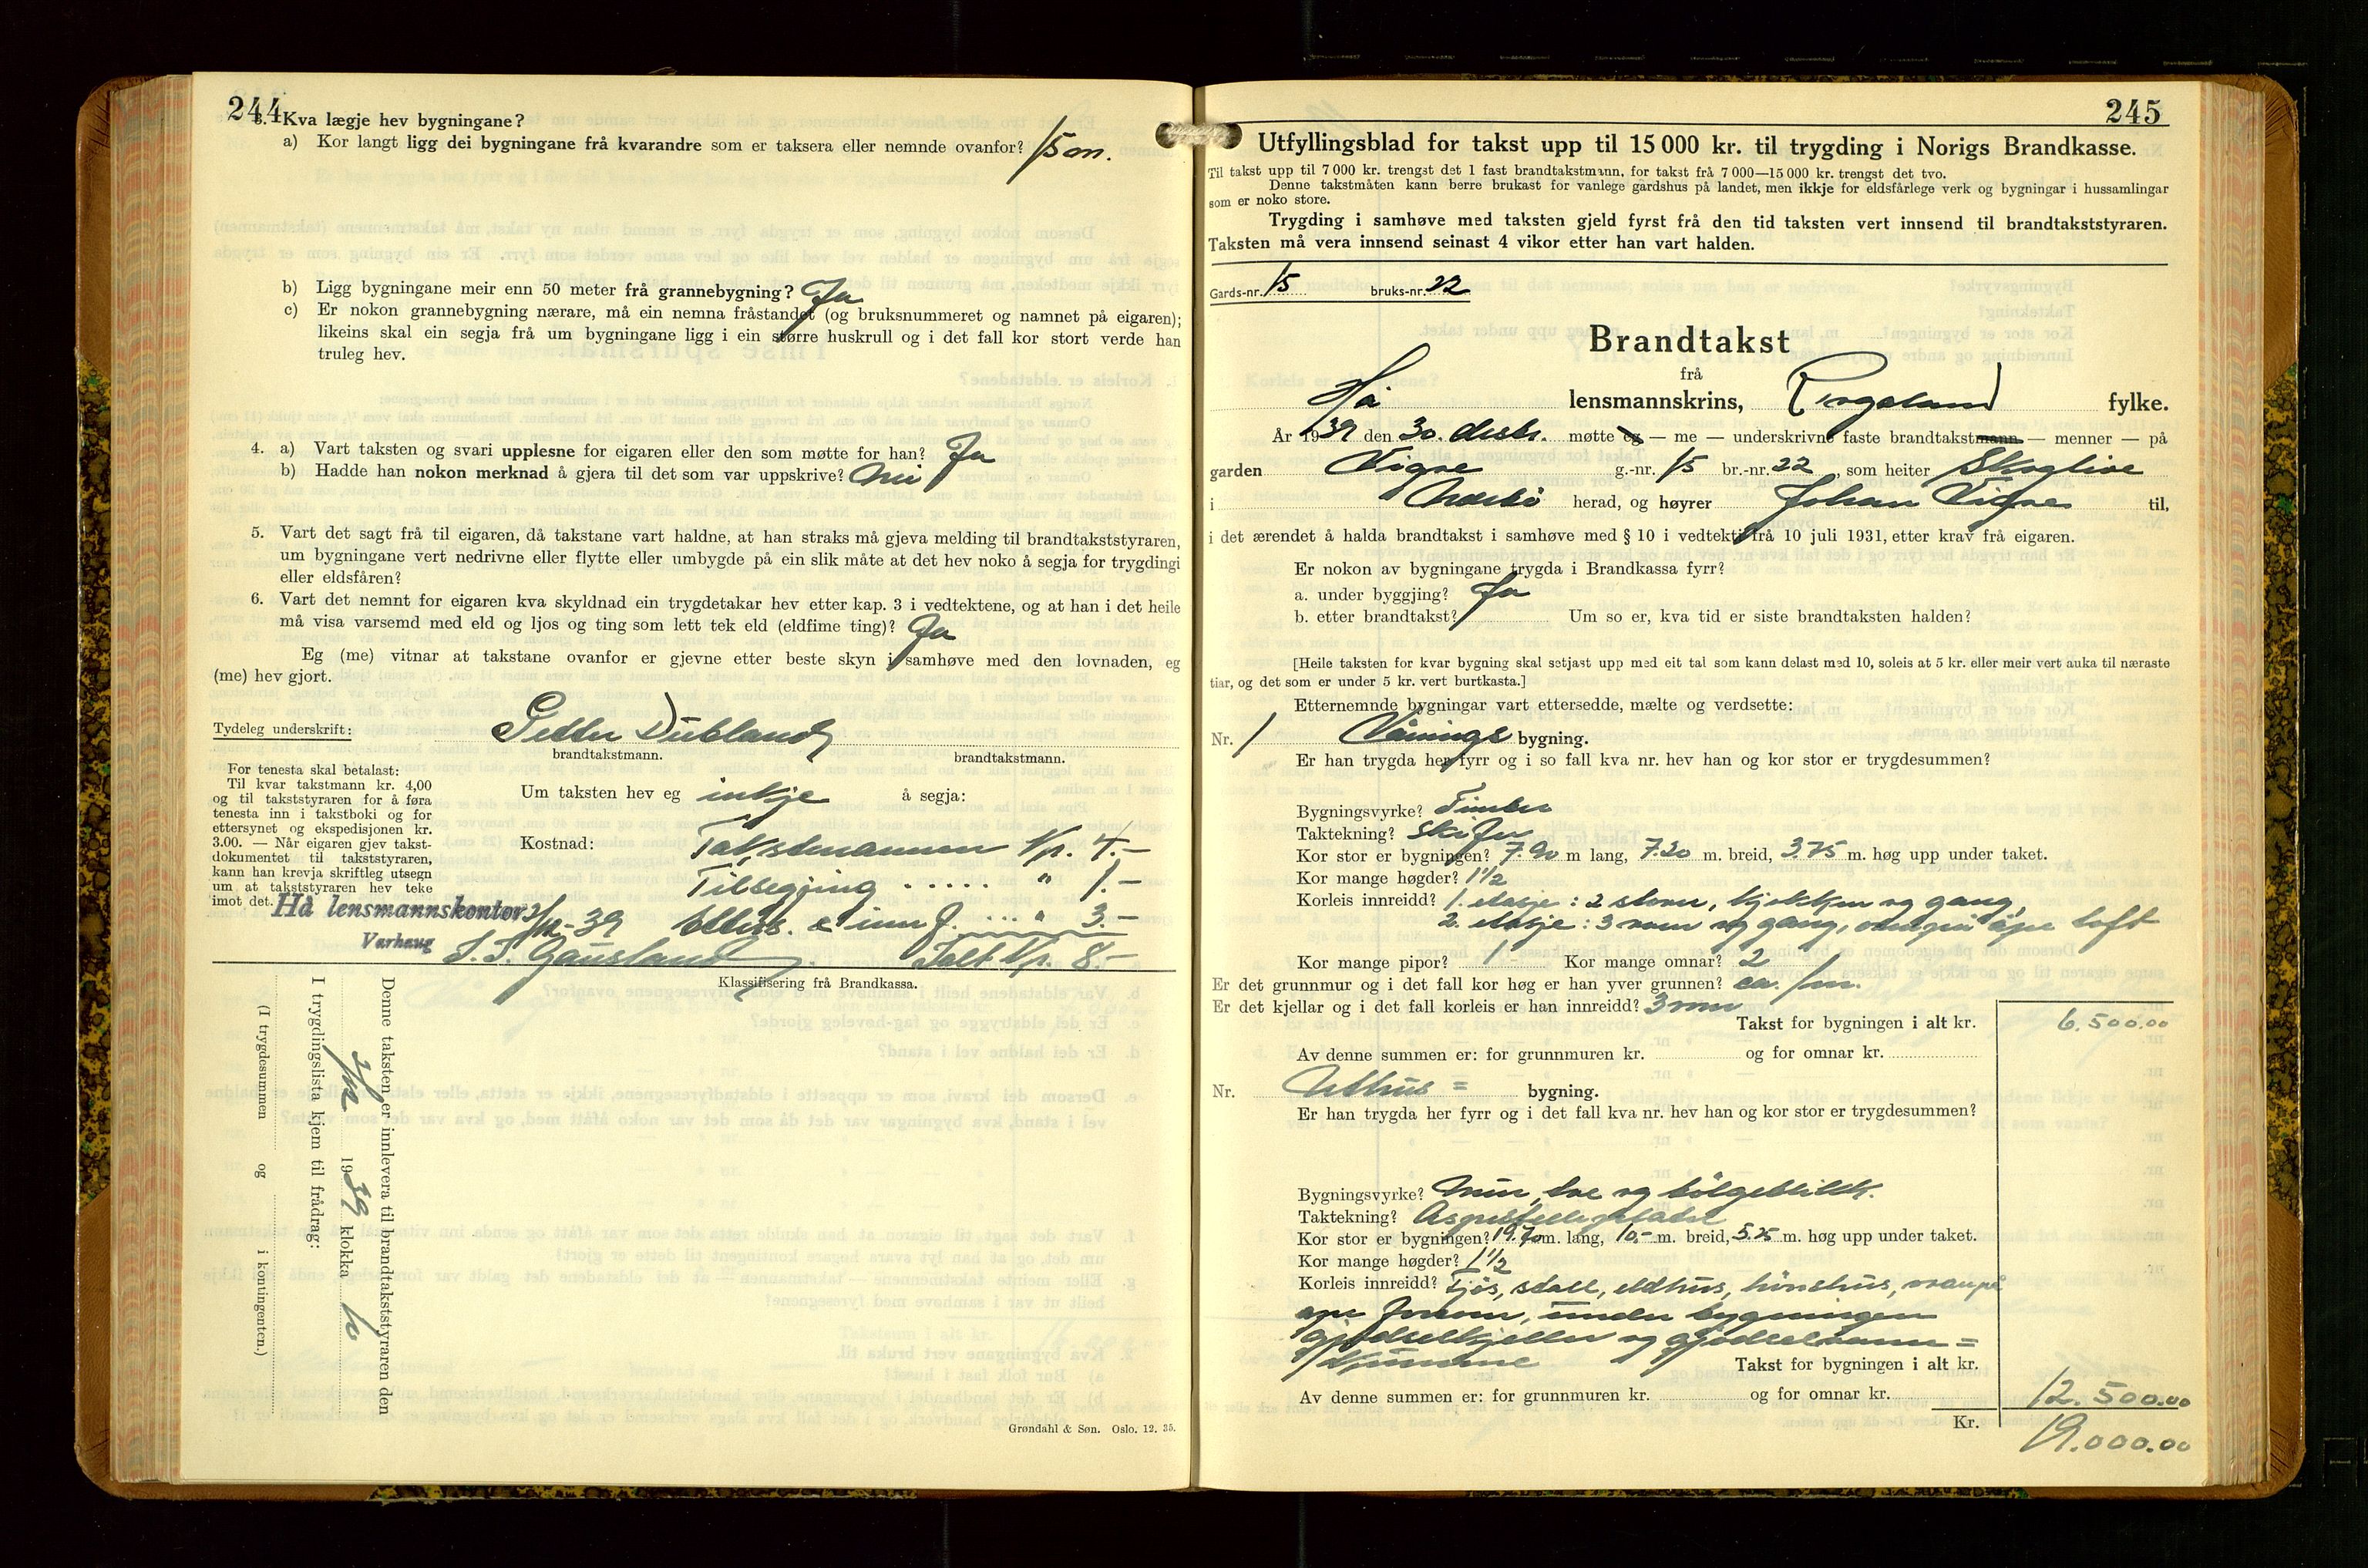 244
3. Kva lægje hev bygningane?
a) Kor langt ligg dei bygningane frå kvarandre som er taksera eller nemnde ovanfor? 15 m.
b) Ligg bygningane meir enn 50 meter frå grannebygning? Ja
c) Er nokon grannebygning nærare, må ein nemna fråstandet (og bruksnummeret og namnet på eigaren);
likeins skal ein segja frå um bygningane ligg i ein større huskrull og i det fall kor stort verde han
truleg hev.
4. a) Vart taksten og svari upplesne for eigaren eller den som møtte for han? Ja
b) Hadde han nokon merknad å gjera til det som var uppskrive? Nei
5. Vart det sagt frå til eigaren, då takstane vart haldne, at han straks må gjeva melding til brandtakststyraren,
um bygningane vert nedrivne eller flytte eller umbygde på ein slik måte at det hev noko å segja for trygdingi
eller eldsfåren?
6. Vart det nemnt for eigaren kva skyldnad ein trygdetakar hev etter kap. 3 i vedtektene, og at han i det heile
må visa varsemd med eld og ljos og ting som lett tek eld (eldfime ting)? Ja
Eg (me) vitnar at takstane ovanfor er gjevne etter beste skyn i samhøve med den lovnaden, eg
(me) hev gjort.
Tydeleg underskrift: Petter Dubland
brandtakstmann. brandtakstmann.
For tenesta skal betalast:
Til kvar takstmann kr. 4,00
og til takststyraren for å føra
tenesta inn i takstboki og for
ettersynet og ekspedisjonen kr.
3.00. — Når eigaren gjev takst-
dokumentet til takststyraren,
kann han krevja skriftleg utsegn
um at takststyraren hev teke
imot det.
Um taksten hev eg inkje å segja:
Kostnad: Takstmannen Kr. 4.-
Tilsegjing ...... " 1.-
Hå lensmannskontor 39 Etters. & innf. .... " 3.-
Varhaug S. T. Gausland Ialt Kr. 8.-
Klassifisering frå Brandkassa.
Denne taksten er innlevera til brandtakststyraren den
1939 klokka 10
I trygdingslista kjem til frådrag:
(I trygdesummen og i kontingenten.)
Grøndahl & Søn. Oslo. 12. 35.
245
Utfyllingsblad for takst upp til 15 000 kr. til trygding i Norigs Brandkasse.
Til takst upp til 7 000 kr. trengst det 1 fast brandtakstmann, for takst frå 7 000—15 000 kr. trengst det tvo.
Denne takstmåten kann berre brukast for vanlege gardshus på landet, men ikkje for eldsfårlege verk og bygningar i hussamlingar
som er noko store.
Trygding i samhøve med taksten gjeld fyrst frå den tid taksten vert innsend til brandtakststyraren.
Taksten må vera innsend seinast 4 vikor etter han vart halden.
Gards-nr. 15 bruks-nr. 22
Brandtakst
frå
Hå lensmannskrins, Rogaland fylke.
År 1939 den 30. desbr. møtte eg — me — underskrivne faste brandtakstmann — menner — på
garden Vigre g.-nr. 15 br.-nr. 22, som heiter Skoglive
i Nærbø herad, og høyrer Johan Vigre til,
i det ærendet å halda brandtakst i samhøve med § 10 i vedtekti frå 10 juli 1931, etter krav frå eigaren.
Er nokon av bygningane trygda i Brandkassa fyrr?
a. under byggjing? Ja
b. etter brandtakst? Um so er, kva tid er siste brandtaksten halden?
[Heile taksten for kvar bygning skal setjast upp med eit tal som kann delast med 10, soleis at 5 kr. eller meir vert auka til næraste
tiar, og det som er under 5 kr. vert burtkasta.]
Etternemnde bygningar vart ettersedde, mælte og verdsette:
Nr. 1 Vånings bygning.
Er han trygda her fyrr og i so fall kva nr. hev han og kor stor er trygdesummen?
Bygningsvyrke? Timber
Taktekning? Skifer
Kor stor er bygningen? 7.90 m lang, 7.20 m. breid, 3.75 m. høg upp under taket.
Kor mange høgder? 1 1/2
Korleis innreidd? 1. etasje: 2 stover, kjøkken og gang,
2. etasje: 3 rom og gang, ovanpå åpe loft
Kor mange pipor? 1 Kor mange omnar? 2
Er det grunnmur og i det fall kor høg er han yver grunnen? ca. 1 m.
Er det kjellar og i det fall korleis er han innreidd? 3 rom
Takst for bygningen i alt kr. 6.500.00
Av denne summen er: for grunnmuren kr. og for omnar kr.
Nr. Uthus = bygning.
Er han trygda her fyrr og i det fall kva nr. hev han og kor stor er trygdesummen?
Bygningsvyrke? Mur, tre og bølgeblikk.
Taktekning?
Kor stor er bygningen? 19.70 m. lang, 10.- m. breid, 5.25 m. høg upp under taket.
Kor mange høgder? 1 1/2
Korleis innreidd? Fjøs, stall, eldhus, hønshus, ovanpå
under bygningen
gjødselkjeller og
Takst for bygningen i alt kr. 12.500.00
Av denne summen er: for grunnmuren kr. og for omnar kr.
Kr. 19.000.00